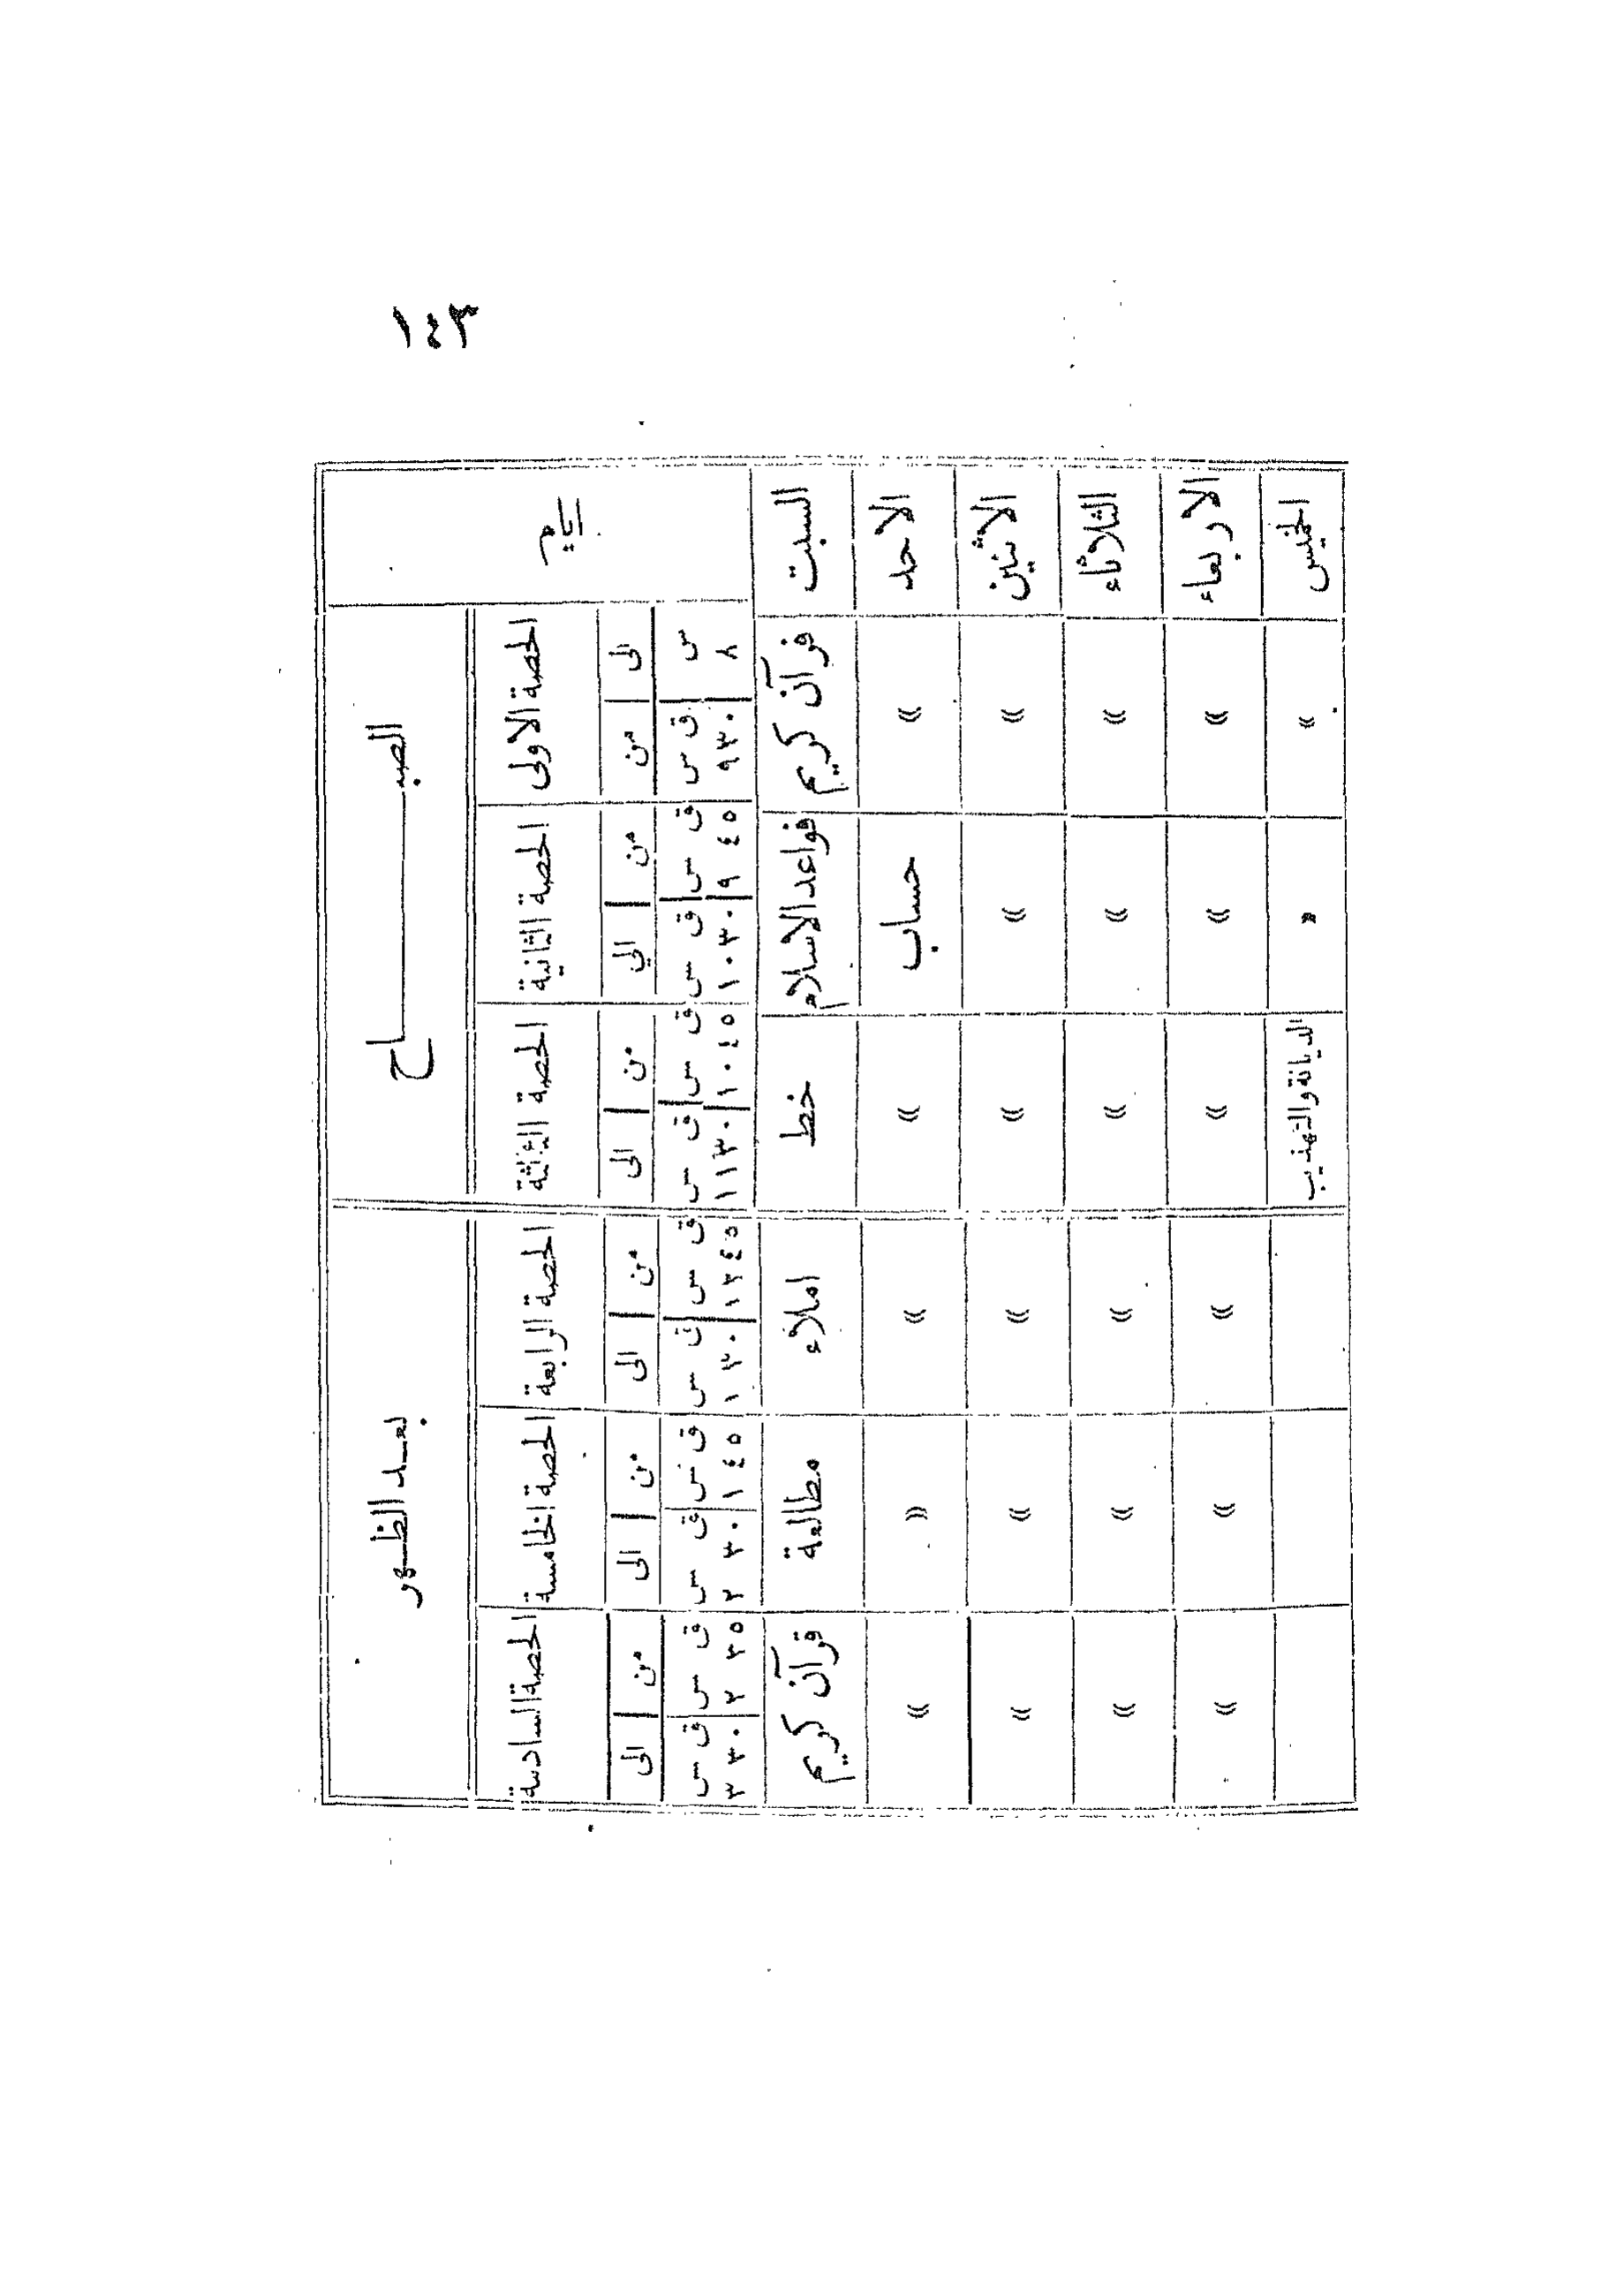 ١٤٣
الصبــــاح
بعد الظهر
الحصة الاولى
الحصة الثانية
الحصة الثالثة
الحصة الرابعة
الحصة الخامسة
الحصة السادسة
الى من
من الي
من الى
من الى
من الى
من الى
س ق س
ق س ق س
ق س ق س
ق س ق س
ق س ق س
ق س ق س
٨ ٩٣٠
٩ ٤٥ ١٠٣٠
١٠٤٥ ١١٣٠
١٢٤٥ ١ ٣٠
١ ٤٥ ٢ ٣٠
٢ ٣٥ ٣ ٣٠
السبت قرآن كريم قواعد الاسلام خط املاء مطالعة قرآن كريم
الاحد » حساب » » » »
الاثنين » » » » » »
الثلاثاء » » » » » »
الاربعاء » » » » » »
الخميس » » الديانة والتهذيب